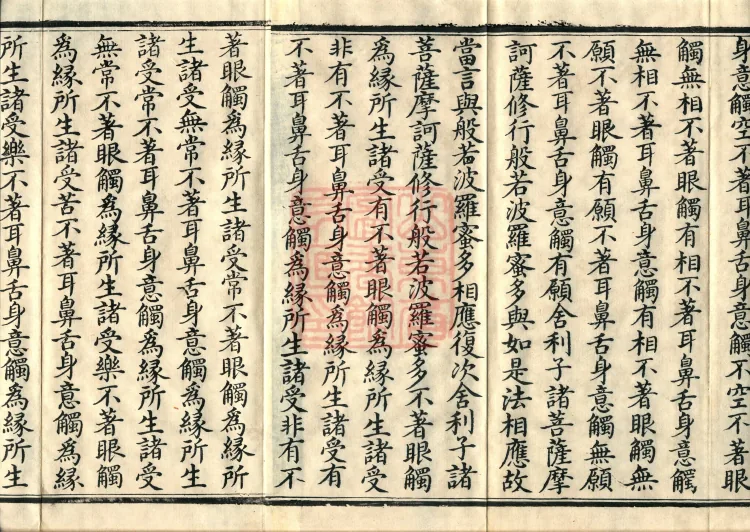 身意觸空不著耳鼻舌身意觸不空不著眼
觸無相不著眼觸有相不著耳鼻舌身意觸
無相不著耳鼻舌身意觸有相不著眼觸無
願不著眼觸有願不著耳鼻舌身意觸無願
不著耳鼻舌身意觸有願舍利子諸菩薩摩
訶薩修行般若波羅蜜多與如是法相應故
當言與般若波羅蜜多相應復次舍利子諸
菩薩摩訶薩修行般若波羅蜜多不著眼觸
為緣所生諸受有不著眼觸為緣所生諸受
非有不著耳鼻舌身意觸為緣所生諸受有
不著耳鼻舌身意觸為緣所生諸受非有不
著眼觸為緣所生諸受常不著眼觸為緣所
生諸受無常不著耳鼻舌身意觸為緣所生
諸受常不著耳鼻舌身意觸為緣所生諸受
無常不著眼觸為緣所生諸受樂不著眼觸
為緣所生諸受苦不著耳鼻舌身意觸為緣
所生諸受樂不著耳鼻舌身意觸為緣所生